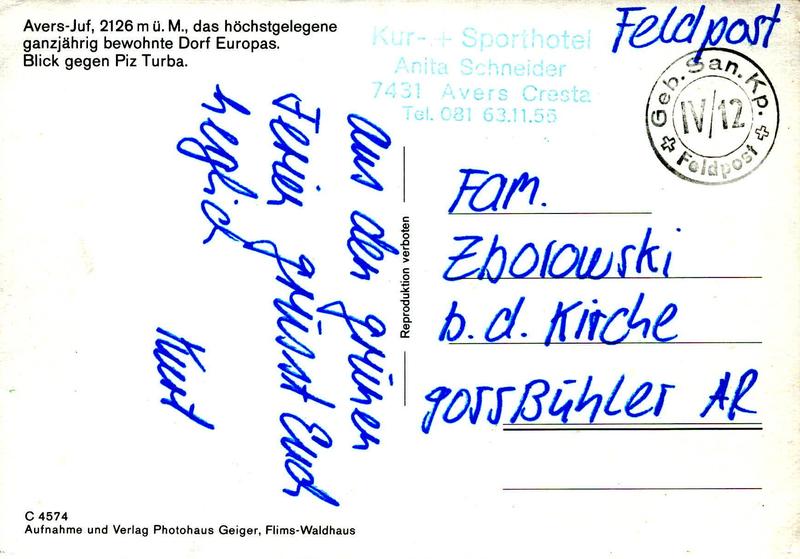 Avers-Juf, 2126 m ü. M., das höchstgelegene
ganzjährig bewohnte Dorf Europas.
Blick gegen Piz Turba.
Kur- + Sporthotel
Anita Schneider
7431 Avers Cresta
Tel. 081 63.11.55
Feldpost
Geb. San. Kp.
IV/12
Feldpost
Aus den grünen
Ferien grüsst Euch
herzlich
Kurt
Reproduktion verboten
Fam.
Zborowski
b. d. Kirche
9055 Bühler AR
C 4574
Aufnahme und Verlag Photohaus Geiger, Flims-Waldhaus